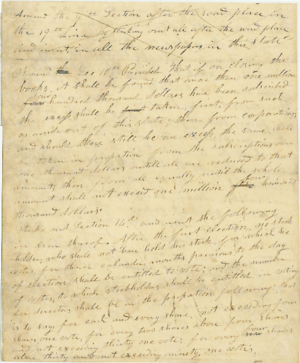 Amend the Section after the word place in
the 19th line by striking out all after the word place
and insert in all the newspapers in this state
Sec 10th Provided that if on closing the
books, it shall be found that more than one million
hundred thousand dollars have been subscribed
the excess shall be taken first, from such
as reside out of this state, then from corporations
and should there still be an excess the same shall
be taken in proportion from the subscriptions over
one thousand dollars untill all are reduced to that
amount, then from all equally untill the whole
amount shall not exceed one million hundred
thousand dollars
Strike out Section 14th and insert the following
in lieu thereof. After the first election, no stock
holder, who shall not have held his stock for which he
votes for three calendar months previous to the day
of election shall be entitled to vote; and the number
of votes, to which stockholders shall be entitled in voting
for directors shall be in the proportion following: that
is to say for each and every share, not exceeding four
shares, one vote, for every two shares above four shares
not exceeding thirty one vote; for every four shares
above thirty and not exceeding ninety, one vote,